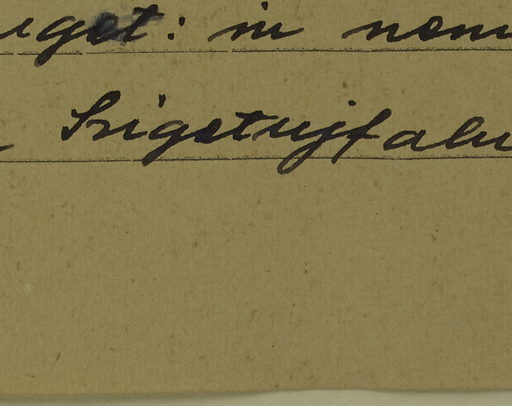 iget: in nom
Szigetujfalu